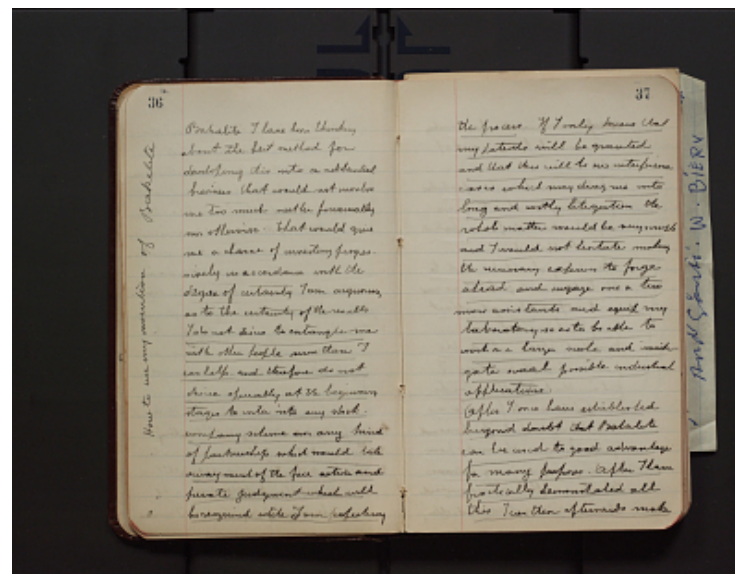 36
How to use my invention of Bakelite
Bakelite I have been thinking
about the best method for
developing this into a substantial
business that would not involve
me too much neither financially
nor otherwise. That would give
me a chance of investing progres-
sively in accordance with the
degree of certainty I am acquiring
as to the certainty of the results
I do not desire to entangle me
with other people more than I
can help and therefore do not
desire specially at the beginning
stages to enter into any stock
company scheme nor any kind
of partnership which would take
away most of the free action and
private judgment which will
be required while I am
37
the process. If I only knew that
my patents will be granted
and that there will be no interference
cases which may drag me into
long and costly litigation the
whole matter would be very much
and I would not hesitate making
the necessary expense to forge
ahead and engage one or two
more assistants and equip my
laboratory so as to be able to
work on a large scale and
several possible industrial
applications.
After I once have established
beyond doubt that Bakelite
can be used to good advantage
for many purposes. After I have
practically demonstrated all
this I can then afterwards make
W. BIERY